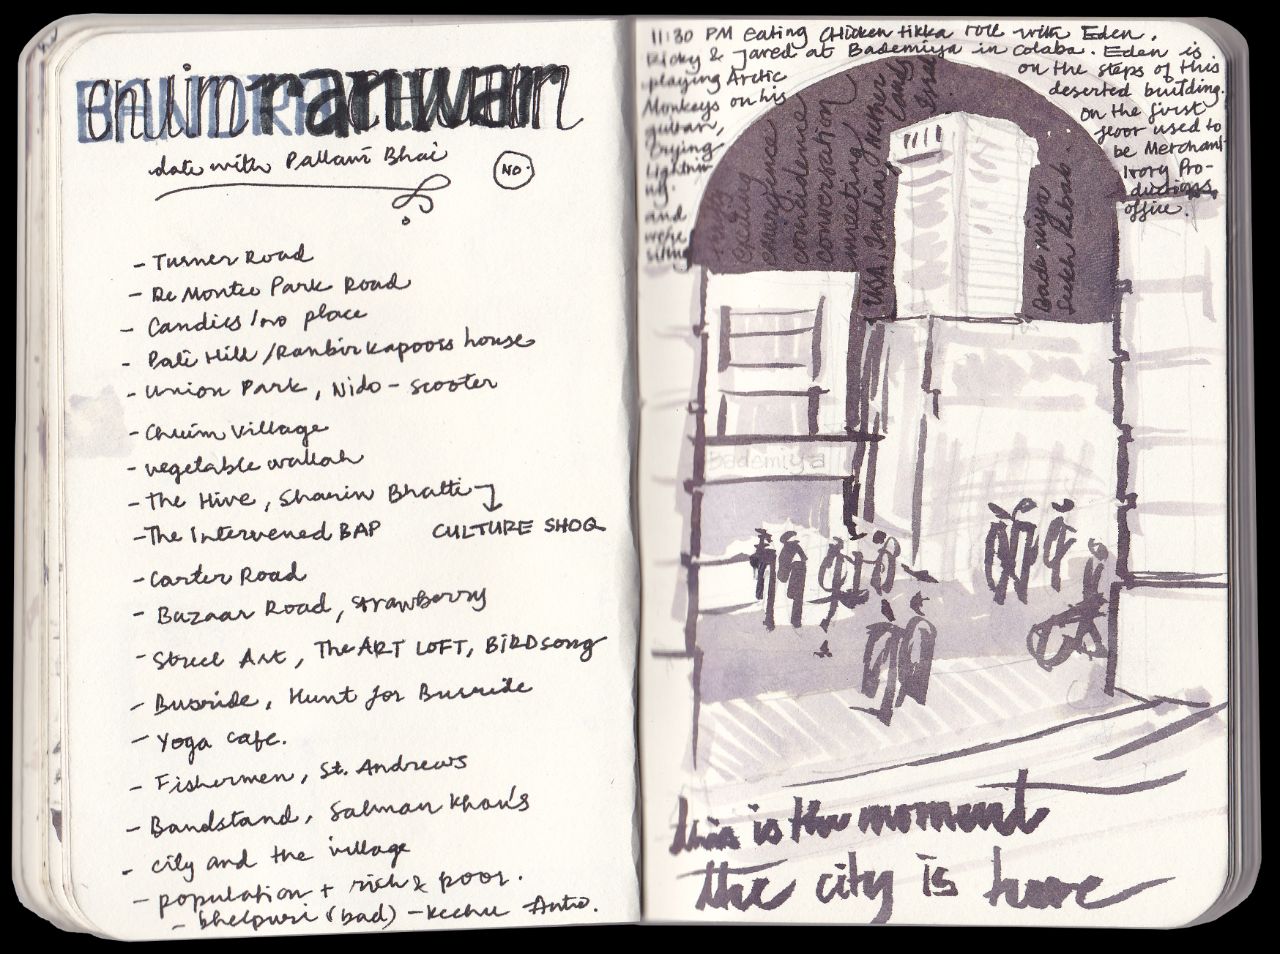 BANDRA
chuim ranwar
date with Pallavi Bhai
NO.
- Turner Road
- De Monte Park Road
- Candies / no place
- Pali Hill / Ranbir Kapoors house
- Union Park, Nido - scooter
- Chuim Village
- vegetable wallah
- The Hive, Sharin Bhatti
- The Intervened BAP CULTURE SHOQ
- Carter Road
- Bazaar Road, Strawberry
- Street Art, The ART LOFT, BIRDsong
- Busride, Hunt for Busride
- Yoga cafe.
- Fishermen, St. Andrews
- Bandstand, Salman Khan's
- city and the village
- population + rich & poor.
- bhelpuri (bad) - keehu Auto.
11:30 PM eating chicken tikka roll with Eden,
Ricky & Jared at Bademiya in Colaba. Eden is
playing Arctic
Monkeys on his
guitar,
Crying
Lightni
ng.
and
we're
sitting
on the steps of this
deserted building.
on the first
floor used to
be Merchant
Ivory Pro-
ductions
office.
emergence
coincidence
conversation
meeting
USA, India, neither
Bademiya
Seekh Kebab
bademiya
this is the moment
the city is here